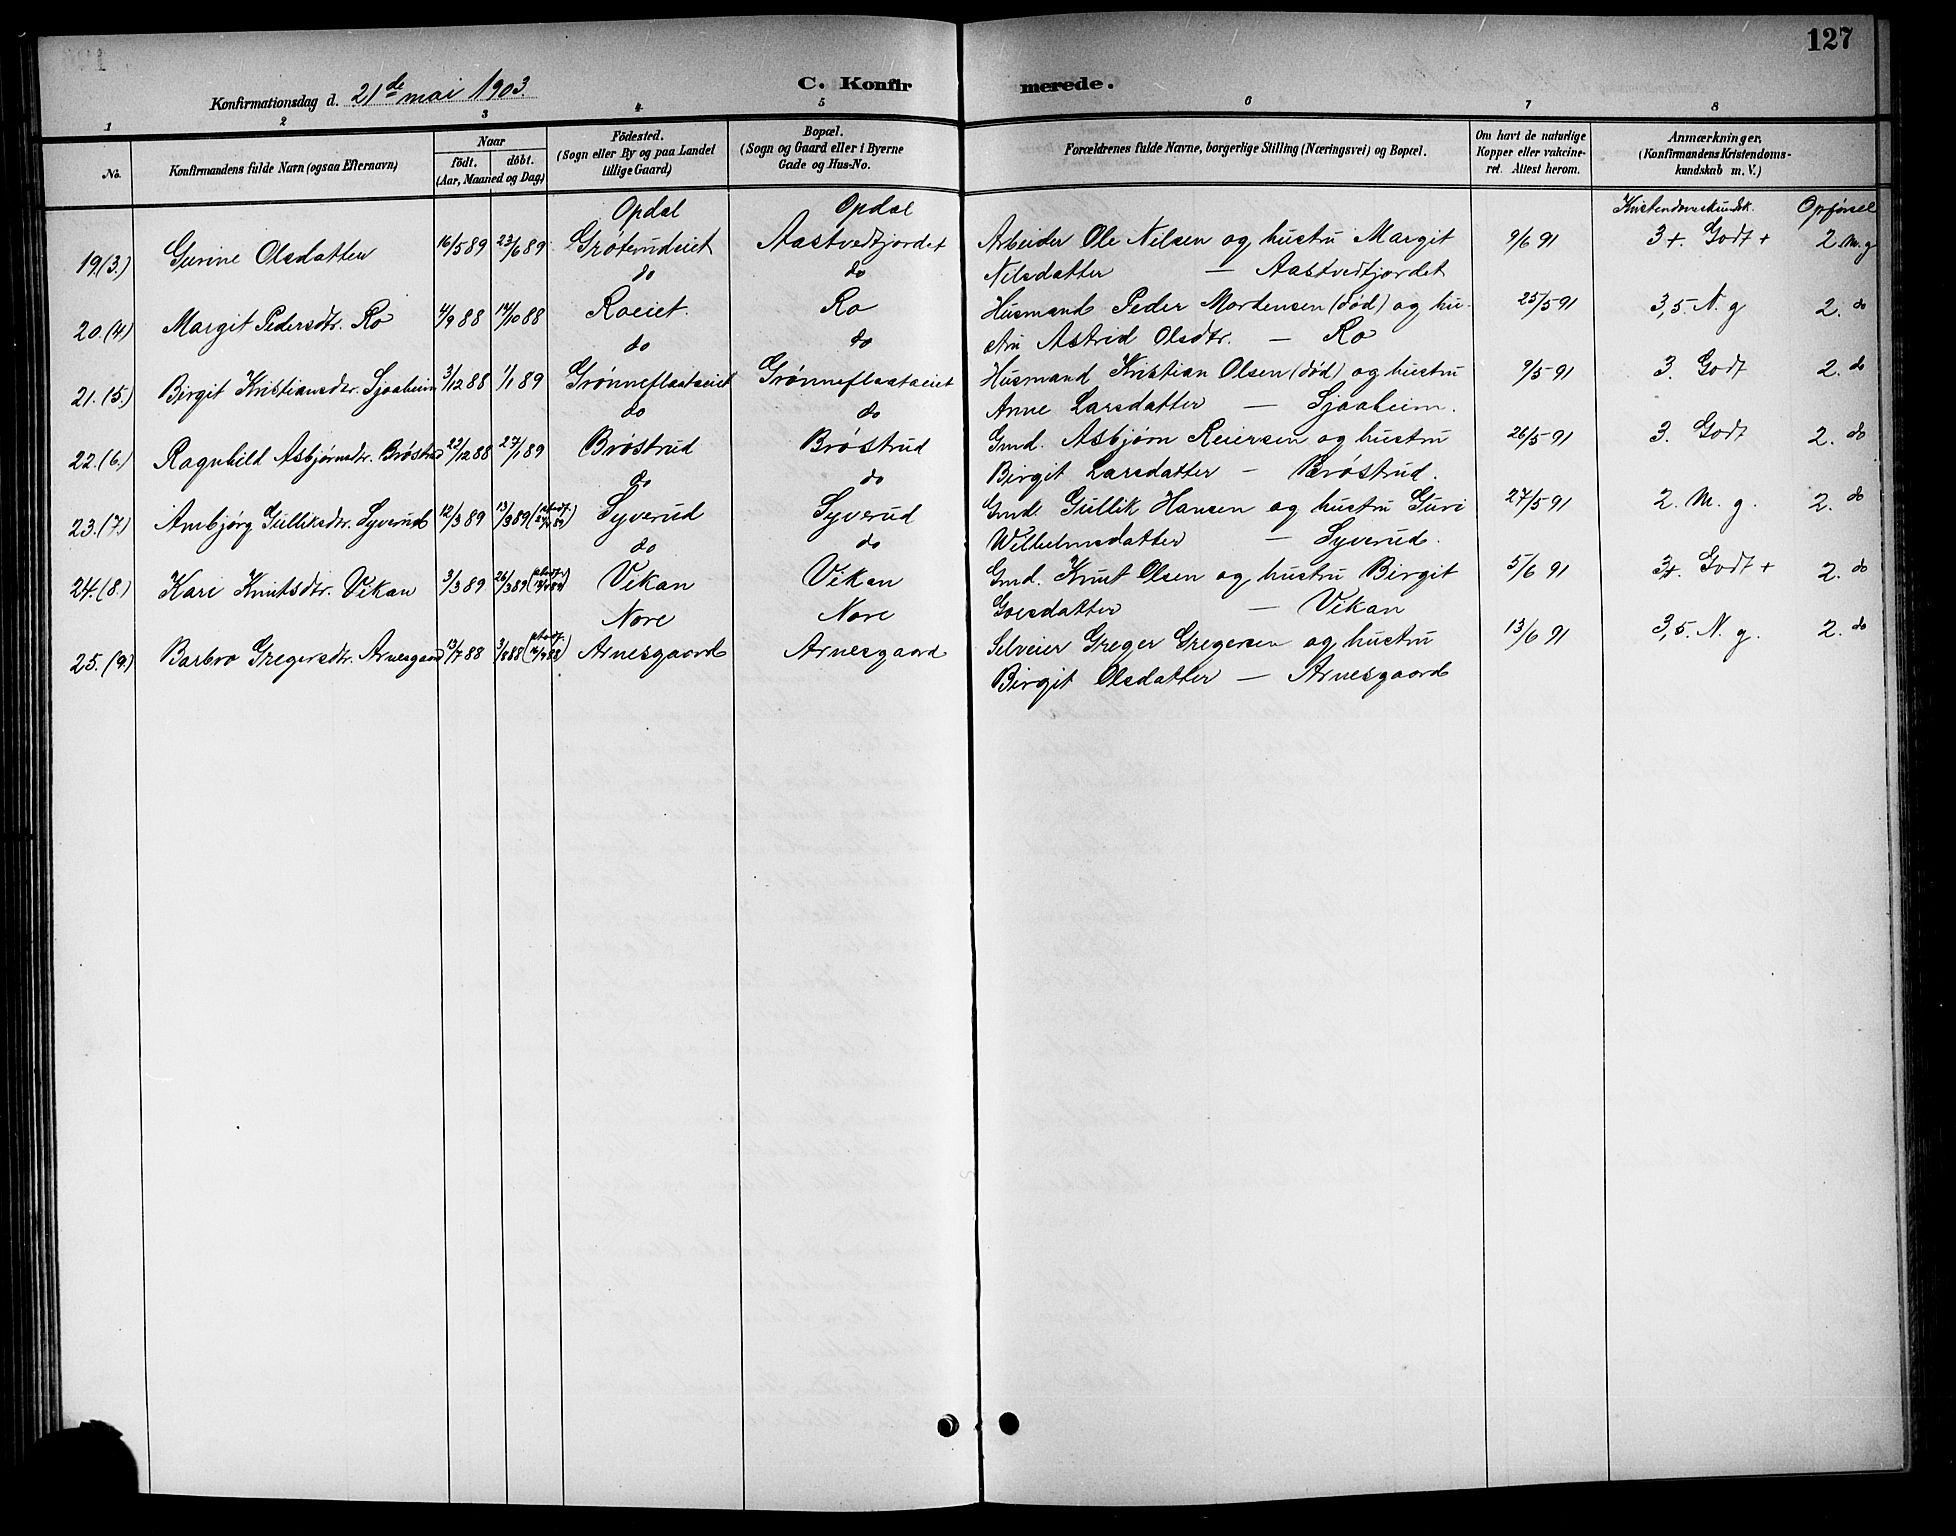 127
Konfirmationsdag d. 21de mai 1903.
C. Konfirmerede.
1 2 3 4 5 6 7 8
No.
Konfirmandens fulde Navn (ogsaa Efternavn)
Naar
födt. döbt.
(Aar, Maaned og Dag)
Födested.
(Sogn eller By og paa Landet
tillige Gaard)
Bopæl.
(Sogn og Gaard eller i Byerne
Gade og Hus-No.
Forældrenes fulde Navne, borgerlige Stilling (Næringsvei) og Bopæl.
Om havt de naturlige
Kopper eller vakcine-
ret. Attest herom.
Anmærkninger,
(Konfirmandens Kristendoms-
kundskab m. V.)
Opdal Opdal Kristendomskundsk. Opførsel
19.(3.) Gurine Olsdatter 16/5 89 23/6 89 Grøterudeiet Aastvedtjordet Arbeider Ole Nilsen og hustru Margit 9/6 91 3+. Godt + 2. M. g
do do Nilsdatter — Aastvedtjordet
20.(4) Margit Pedersdtr. Ro 4/9 88 14/10 88 Roeiet. Ro Husmand Peder Mortensen (død) og hu- 25/5 91 3,5. N. g 2. do
do do stru Astrid Olsdtr. — Ro
21.(5.) Birgit Kristiansdtr. Sjaaheim 3/12 88 1/1 89 Grønneflaataeiet Grønneflaataeiet Husmand Kristian Olsen (død) og hustru 9/5 91 3. Godt 2. do
do do Anne Larsdatter — Sjaaheim.
22.(6.) Ragnhild Asbjørnsdtr. Brøstrud 23/12 88 27/1 89 Brøstrud Brøstrud Gmd. Asbjørn Reiersen og hustru 26/5 91 3. Godt 2. do
do do Birgit Larsdatter — Brøstrud.
23.(7) Ambjørg Gulliksdtr. Syverud 12/3 89 13/3 89 Syverud Syverud Gmd. Gullik Hansen og hustru Guri 27/5 91 2. M. g. 2. do
do do Wilhelmsdatter — Syverud.
24.(8.) Kari Knutsdtr. Vikan 3/3 89 26/3 89 Vikan Vikan Gmd. Knut Olsen og hustru Birgit 5/6 91 3+. Godt + 2. do
Nore Nore Goesdatter — Vikan
25.(9) Barbro Gregersdtr. Arnesgaard 13/7 88 3/8 88 Arnesgaard Arnesgaard Selveier Greger Gregersen og hustru 13/6 91 3,5. N. g. 2. do
Birgit Olsdatter — Arnesgaard